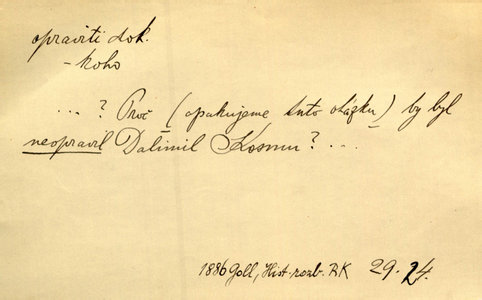 opraviti dok.
- koho
... ? Proč (opakujeme tuto otázku) by byl
neopravil Dalimil Kosmu? ...
1886 Goll, Hist. rozb. RK 29. 24.